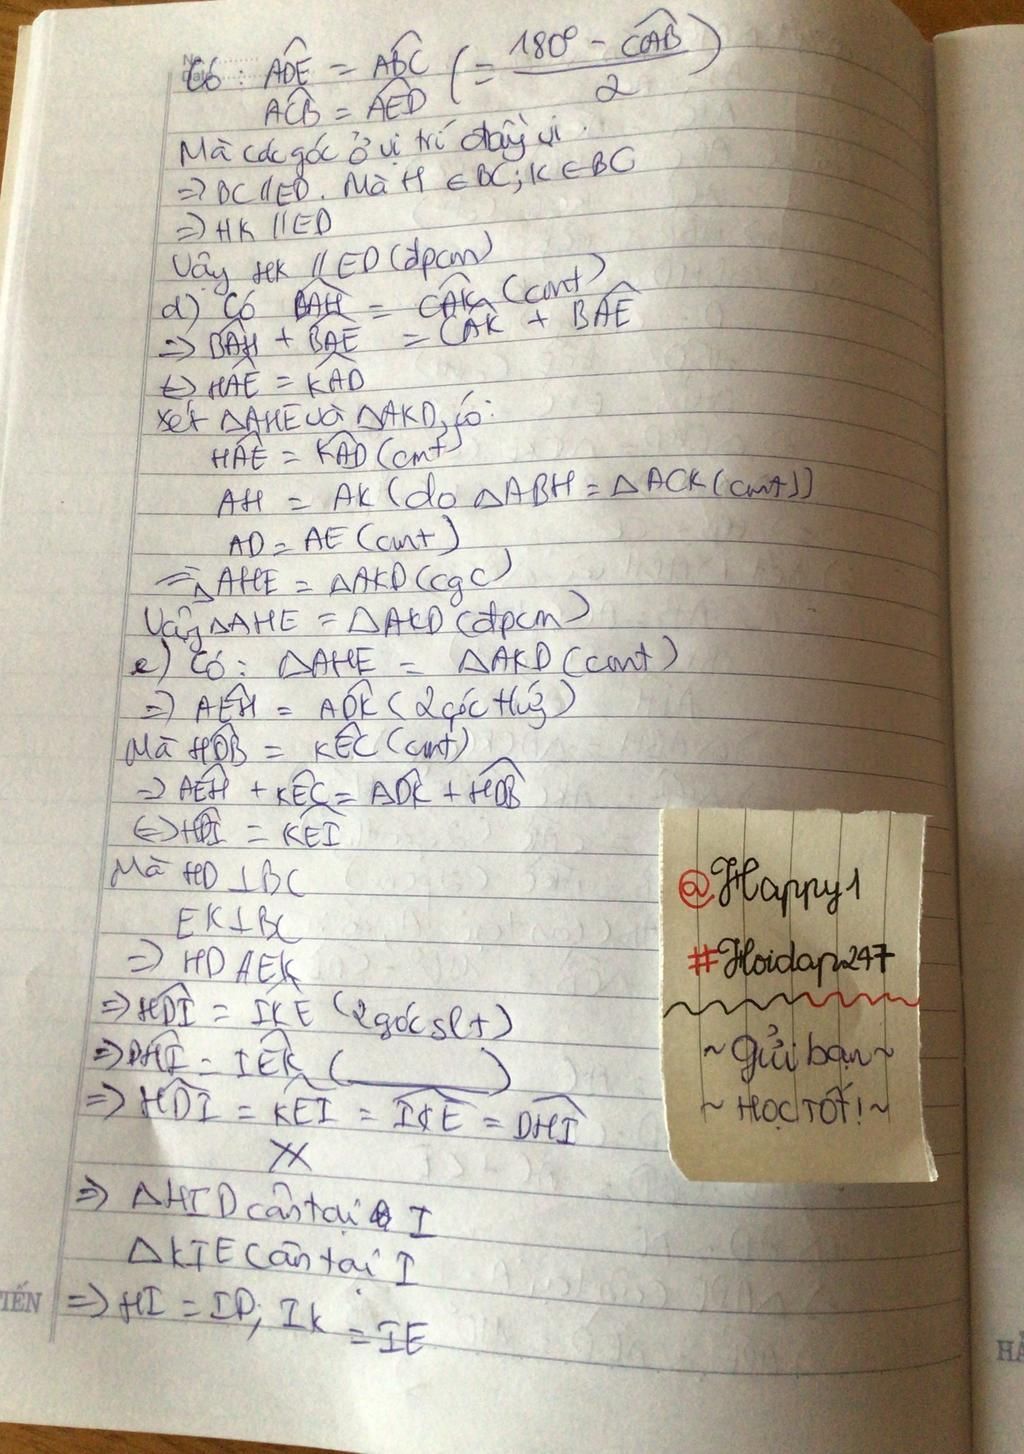 Có: ADE = ABC (= 180° - CAB / 2)
ACB = AED
Mà các góc ở vị trí
=> BC // ED. Mà H ∈ BC; K ∈ BC
=> HK // ED
Vậy HK // ED (đpcm)
d) Có BAH = CAK (cmt)
=> BAH + BAE = CAK + BAE
<=> HAE = KAD
Xét ΔAHE và ΔAKD, có:
HAE = KAD (cmt)
AH = AK (do ΔABH = ΔACK (cmt))
AD = AE (cmt)
=> ΔAHE = ΔAKD (cgc)
Vậy ΔAHE = ΔAKD (đpcm)
e) Có: ΔAHE = ΔAKD (cmt)
=> AEH = ADK (2 góc tứ)
Mà HDB = KEC (cmt)
=> AEH + KEC = ADK + HDB
<=> HDI = KEI
Mà HD ⊥ BC
EK ⊥ BC
=> HD // EK
=> HDI = IKE (2 góc slt)
=> DHI = IEK (
)
=> HDI = KEI = IKE = DHI
=> ΔHID cân tại I
ΔKIE cân tại I
=> HI = ID; IK = IE
@Happy1
#Hoidap247
~ Gửi bạn ~
~ HỌC TỐT! ~
TẾN
HẢ